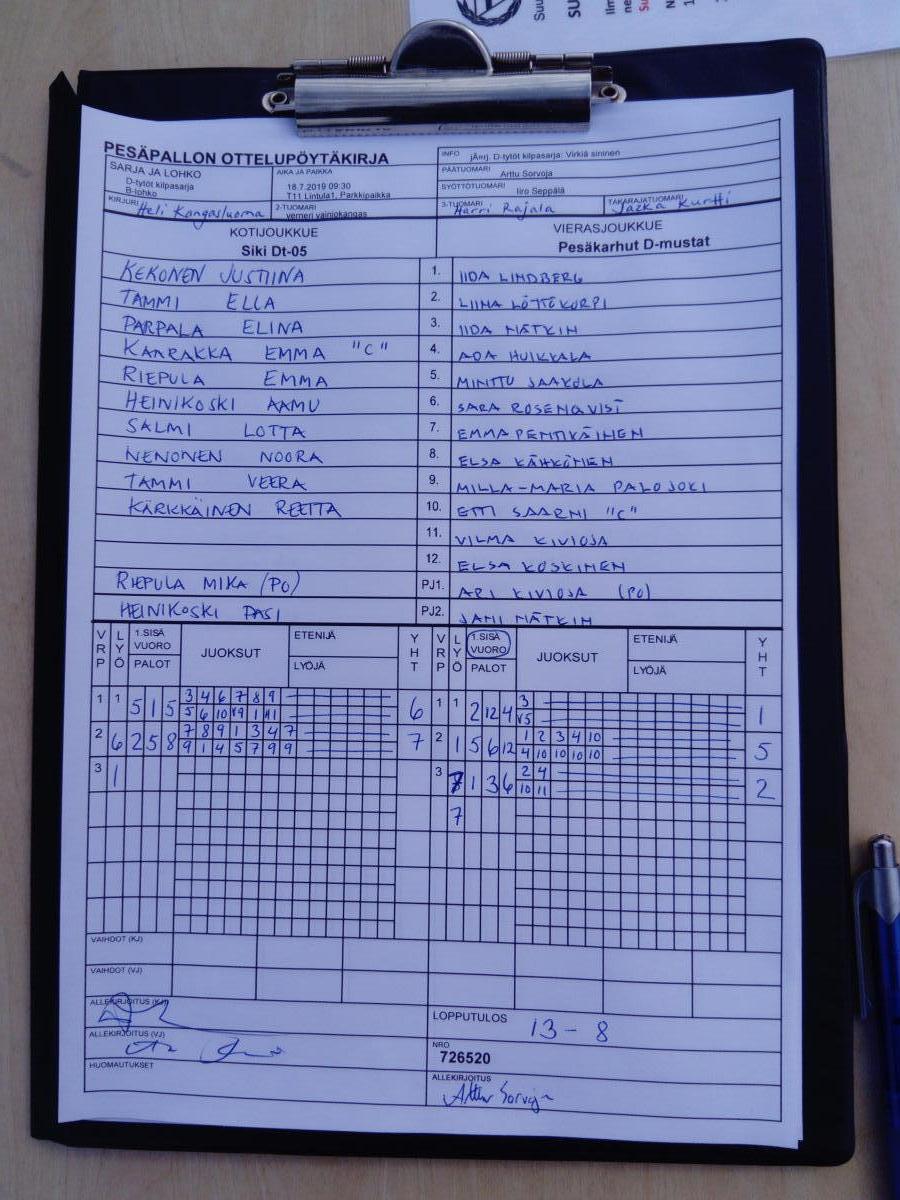 Suu
SU
Ilm
ne
Su
N
1
PESÄPALLON OTTELUPÖYTÄKIRJA
INFO jÄrrj. D-tytöt kilpasarja: Virkiä sininen
SARJA JA LOHKO
D-tytöt kilpasarja
B-lohko
AIKA JA PAIKKA
18.7.2019 09:30
T11 Lintula1, Parkkipaikka
PÄÄTUOMARI Arttu Sorvoja
SYÖTTÖTUOMARI Iiro Seppälä
KIRJURI Heli Kangasluoma
2-TUOMARI verneri vainiokangas
3-TUOMARI Harri Rajala
TAKARAJATUOMARI Jazka Kurtti
KOTIJOUKKUE
Siki Dt-05
VIERASJOUKKUE
Pesäkarhut D-mustat
KEKONEN JUSTIINA 1. IIDA LINDBERG
TAMMI ELLA 2. LIINA LÖTTÖKORPI
PARPALA ELINA 3. IIDA MÄTKIN
KAARAKKA EMMA "C" 4. ADA HUIKKALA
RIEPULA EMMA 5. MINTTU JAAKOLA
HEINIKOSKI AAMU 6. SARA ROSENQVIST
SALMI LOTTA 7. EMMA PENTIKÄINEN
NENONEN NOORA 8. ELSA KÄHKÖNEN
TAMMI VEERA 9. MILLA-MARIA PALOJOKI
KÄRKKÄINEN REETTA 10. ETTI SAARNI "C"
11. VILMA KIVIOJA
12. ELSA KOSKINEN
RIEPULA MIKA (PO) PJ1. ARI KIVIOJA (PO)
HEINIKOSKI PASI PJ2. JANI MÄTKIN
VRP LYÖ 1.SISÄ VUORO PALOT JUOKSUT ETENIJÄ LYÖJÄ YHT VRP LYÖ 1.SISÄ VUORO PALOT JUOKSUT ETENIJÄ LYÖJÄ YHT
1 1 5 1 5 3 4 6 7 8 9 6 1 1 2 12 4 3 1
5 6 10 1 11 V5
2 6 2 5 8 7 8 9 1 3 4 7 7 2 1 5 6 12 1 2 3 4 10 5
9 1 4 5 7 9 9 4 10 10 10 10
3 1 3 1 3 6 2 4 2
7 10 11
VAIHDOT (KJ)
VAIHDOT (VJ)
ALLEKIRJOITUS (KJ)
LOPPUTULOS 13 - 8
ALLEKIRJOITUS (VJ)
NRO
726520
HUOMAUTUKSET
ALLEKIRJOITUS
Arttu Sorvoja